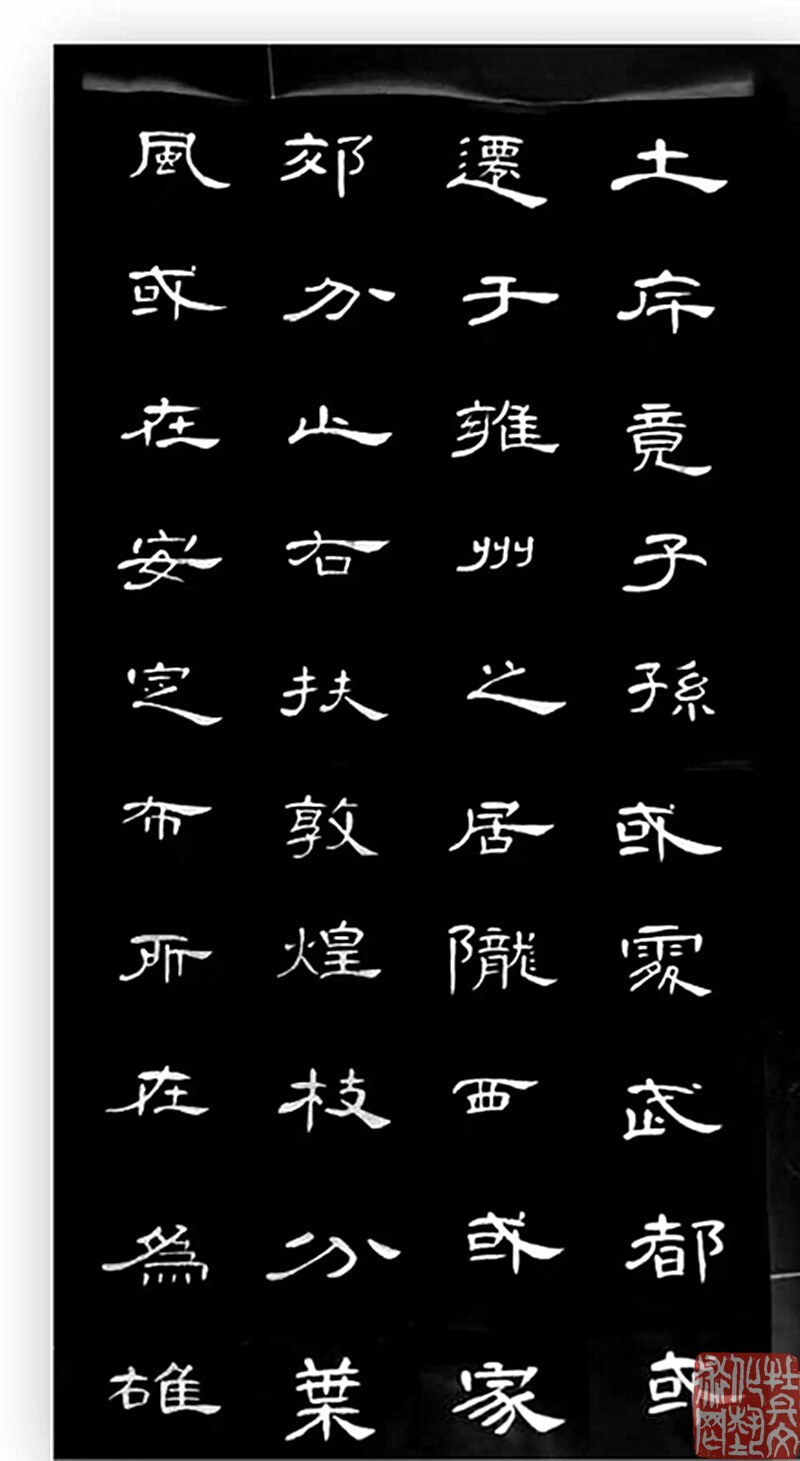 土斥竟子孫或處武都或
遷于雍州之居隴西或家
郊分止右扶敦煌枝分葉
風或在安定布所在為雄